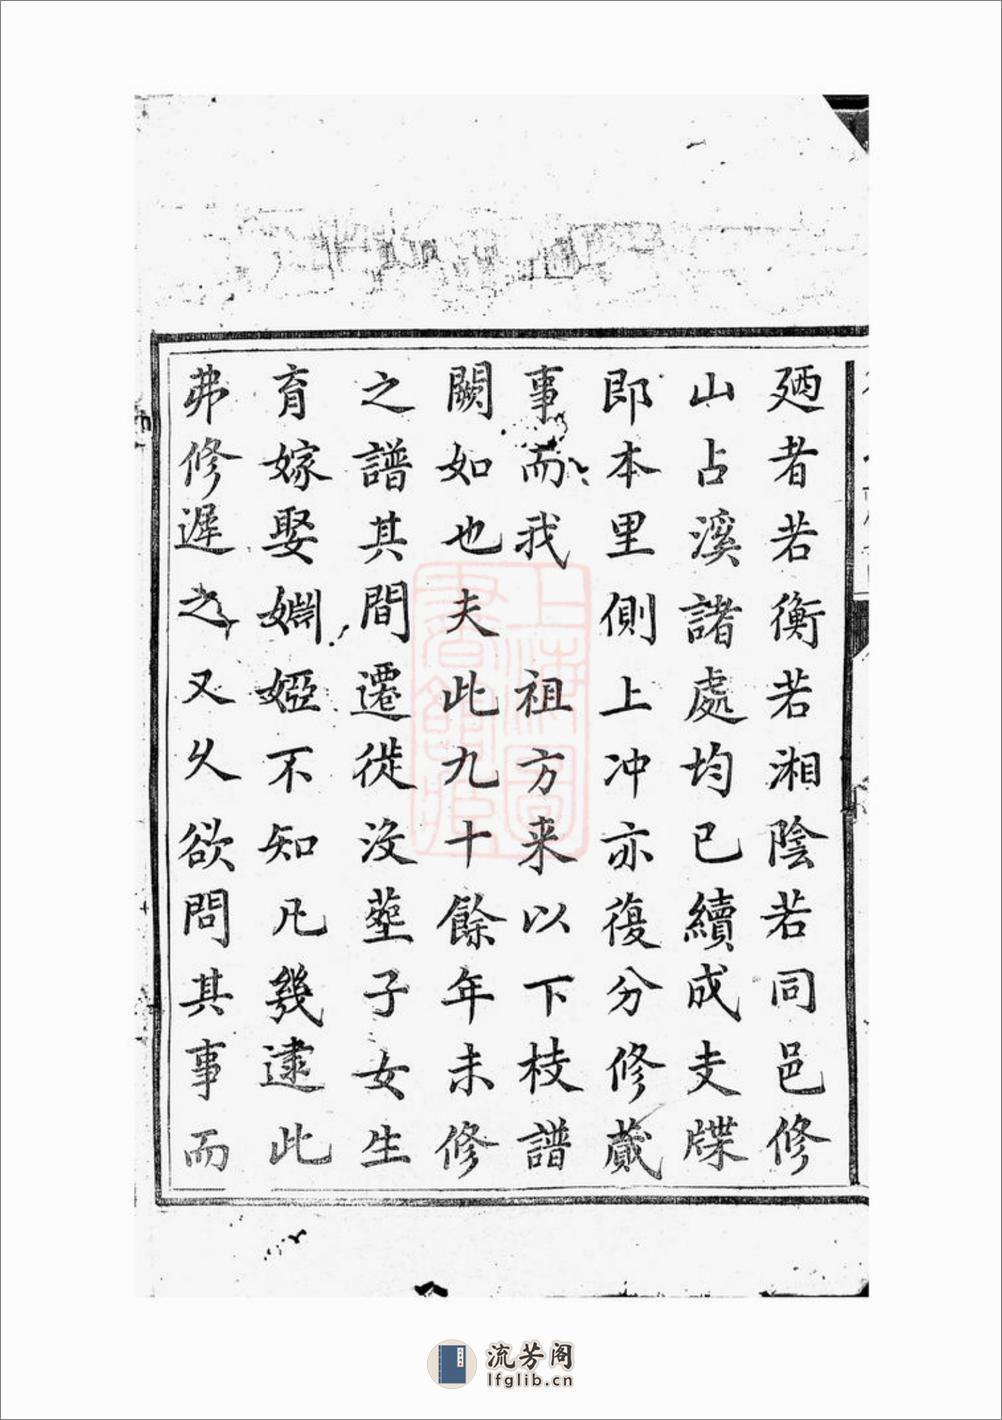 廼者若衡若湘陰若同邑修
山占溪諸處均已續成支牒
即本里側上冲亦復分修蕆
事而我 祖方来以下枝譜
闕如也夫此九十餘年未修
之譜其間遷徙没塟子女生
育嫁娶婣婭不知凡幾逮此
弗修遲之又久欲問其事而
上海圖書館藏
流芳阁
lfglib.cn